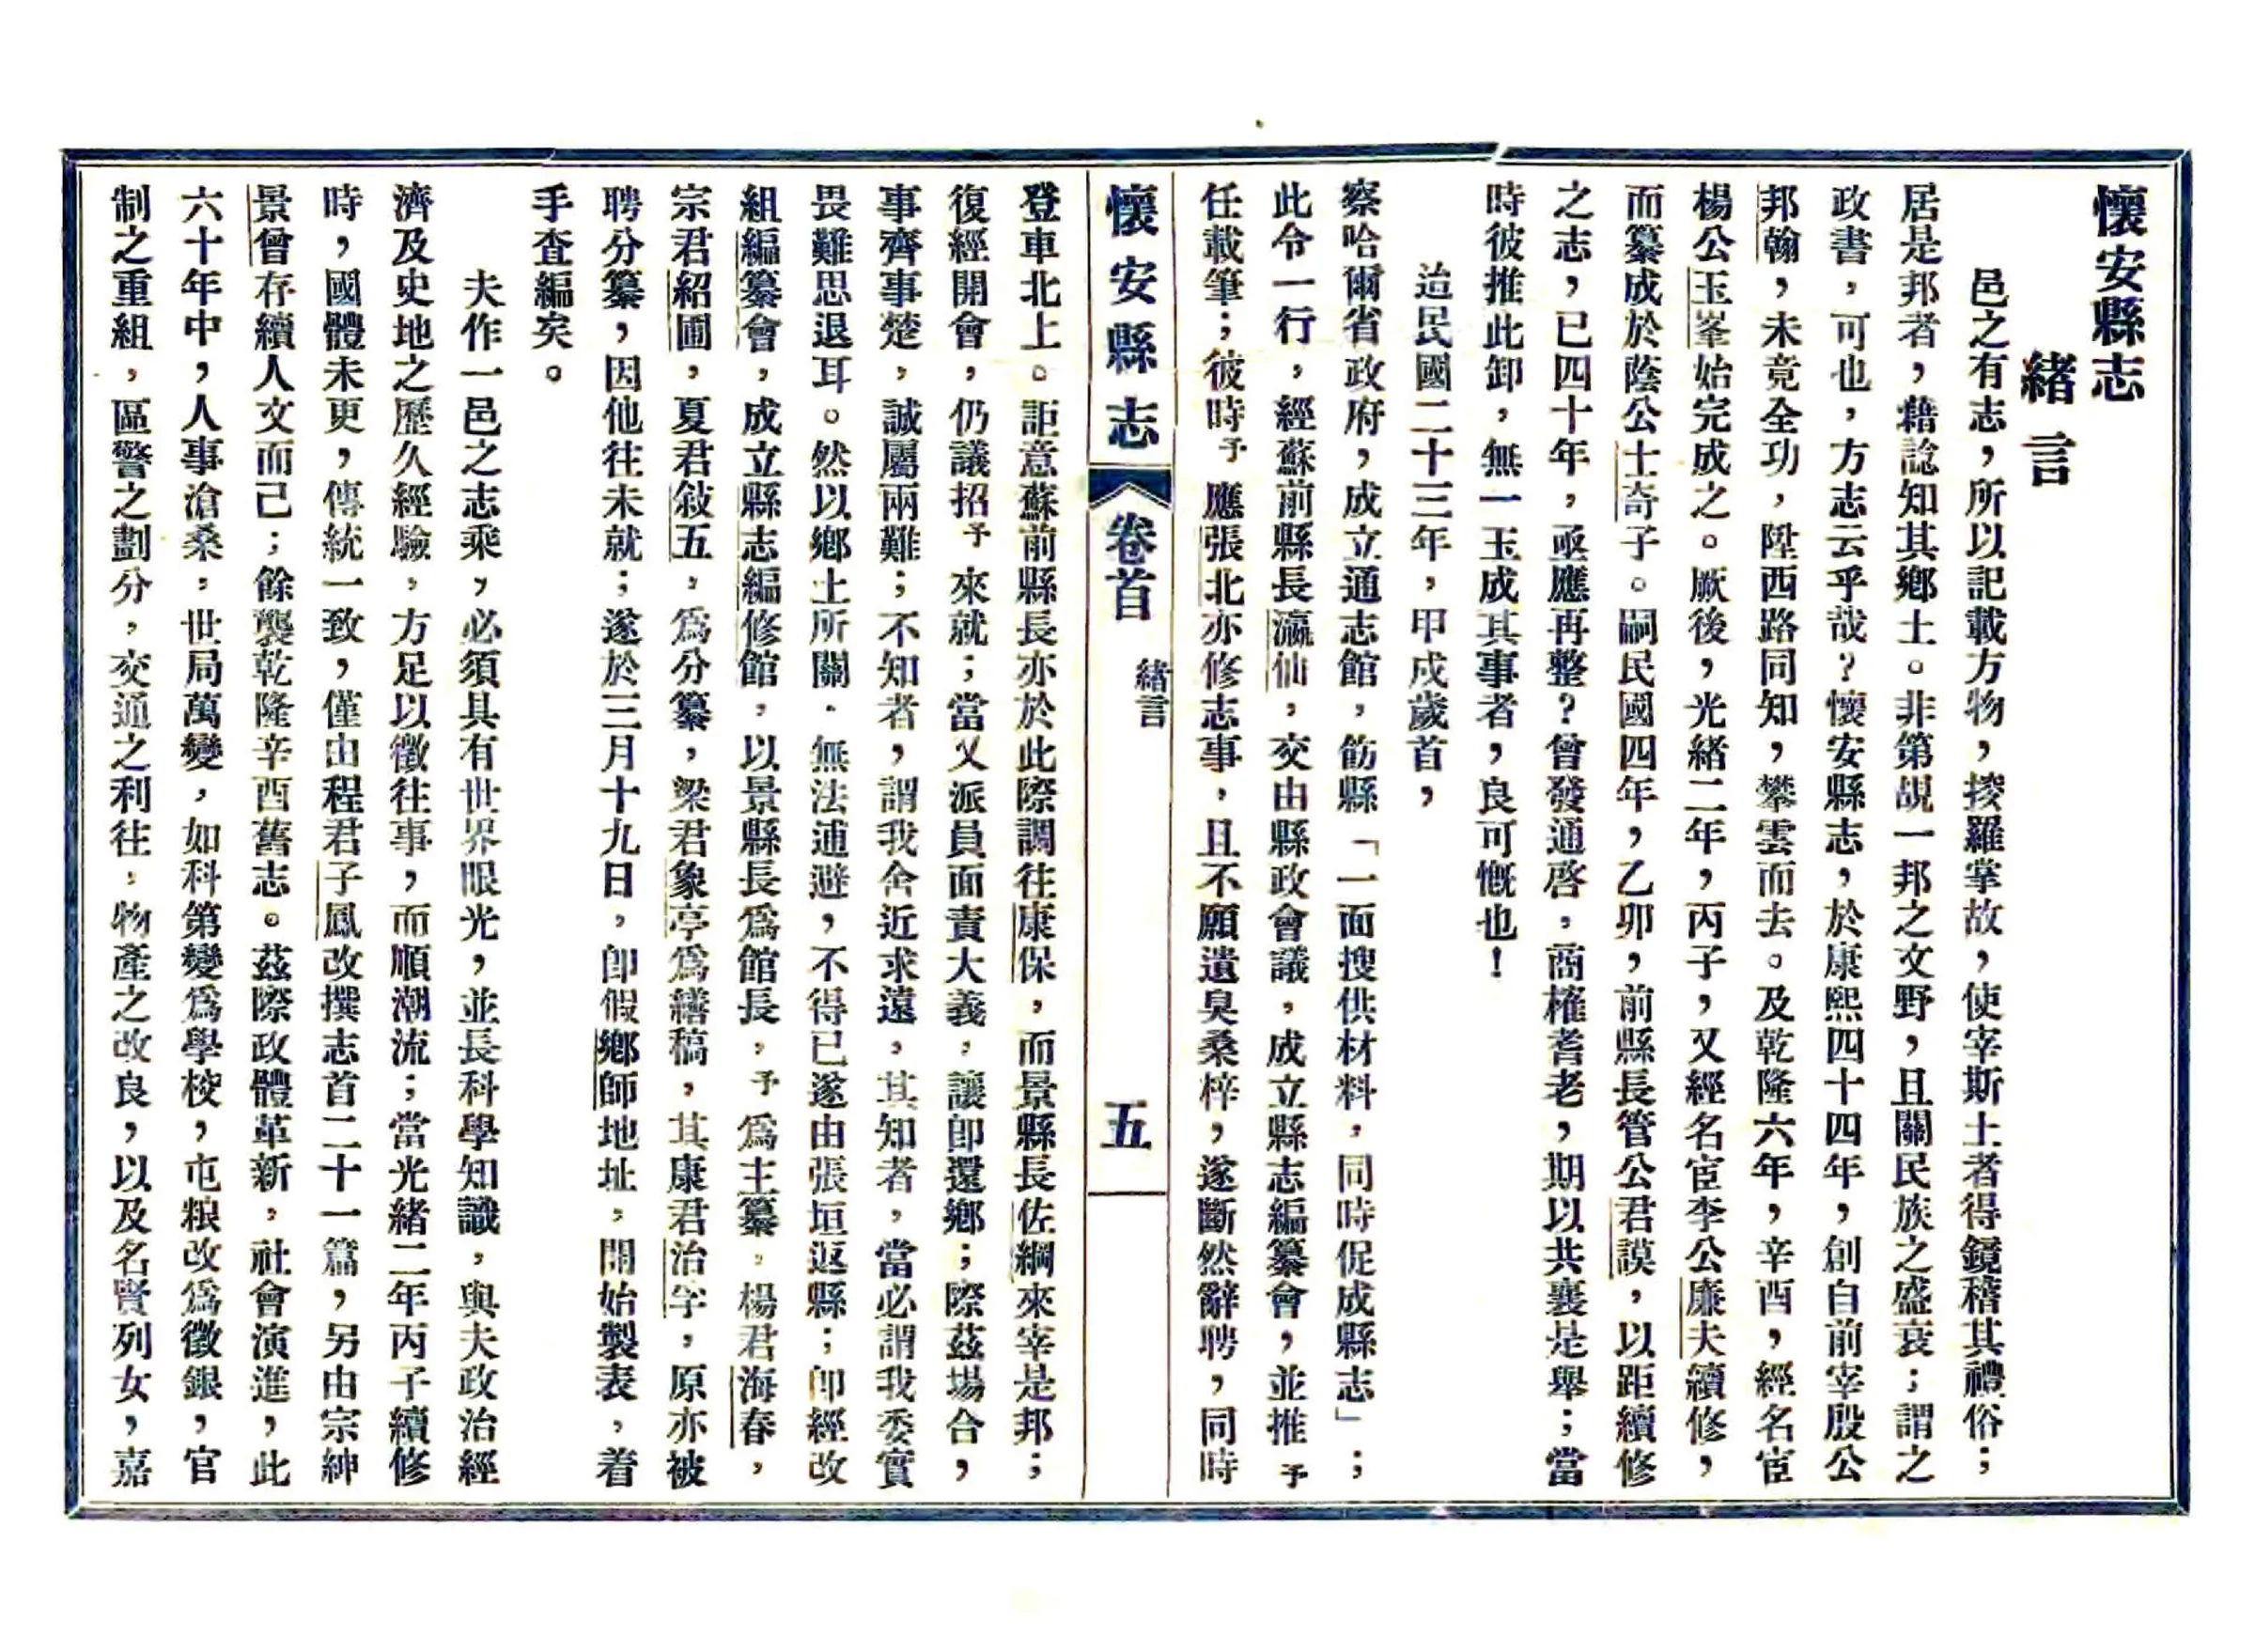 懷安縣志
緒言
邑之有志，所以記載方物，搜羅掌故，使宰斯土者得鏡稽其禮俗；
居是邦者，藉諗知其鄉土。非第覘一邦之文野，且關民族之盛衰；謂之
政書，可也，方志云乎哉？懷安縣志，於康熙四十四年，創自前宰殷公
邦翰，未竟全功，陞西路同知，攀雲而去。及乾隆六年，辛酉，經名宦
楊公玉峯始完成之。厥後，光緒二年，丙子，又經名宦李公廉夫續修，
而纂成於蔭公士奇子。嗣民國四年，乙卯，前縣長管公君謨，以距續修
之志，已四十年，亟應再整？曾發通啓，商榷耆老，期以共襄是舉；當
時彼推此卸，無一玉成其事者，良可慨也！
迨民國二十三年，甲戌歲首，
察哈爾省政府，成立通志館，飭縣「一面搜供材料，同時促成縣志」；
此令一行，經蘇前縣長瀛仙，交由縣政會議，成立縣志編纂會，並推予
任載筆；彼時予應張北亦修志事，且不願遺臭桑梓，遂斷然辭聘，同時
懷安縣志 卷首 緒言 五
登車北上。詎意蘇前縣長亦於此際調往康保，而景縣長佐綱來宰是邦；
復經開會，仍議招予來就；當又派員面責大義，讓卽還鄉；際茲場合，
事齊事楚，誠屬兩難；不知者，謂我舍近求遠，其知者，當必謂我委實
畏難思退耳。然以鄉土所關．無法逋避，不得已遂由張垣返縣；卽經改
組編纂會，成立縣志編修館，以景縣長爲館長，予爲主纂，楊君海春，
宗君紹圃，夏君敍五，爲分纂，梁君象亭爲繕稿，其康君治孚，原亦被
聘分纂，因他往未就；遂於三月十九日，卽假鄉師地址，開始製表，着
手查編矣。
夫作一邑之志乘，必須具有世界眼光，並長科學知識，與夫政治經
濟及史地之歷久經驗，方足以徵往事，而順潮流；當光緒二年丙子續修
時，國體未更，傳統一致，僅由程君子鳳改撰志首二十一篇，另由宗紳
景曾存續人文而已；餘襲乾隆辛酉舊志。茲際政體革新，社會演進，此
六十年中，人事滄桑，世局萬變，如科第變爲學校，屯粮改爲徵銀，官
制之重組，區警之劃分，交通之利往，物產之改良，以及名賢列女，嘉